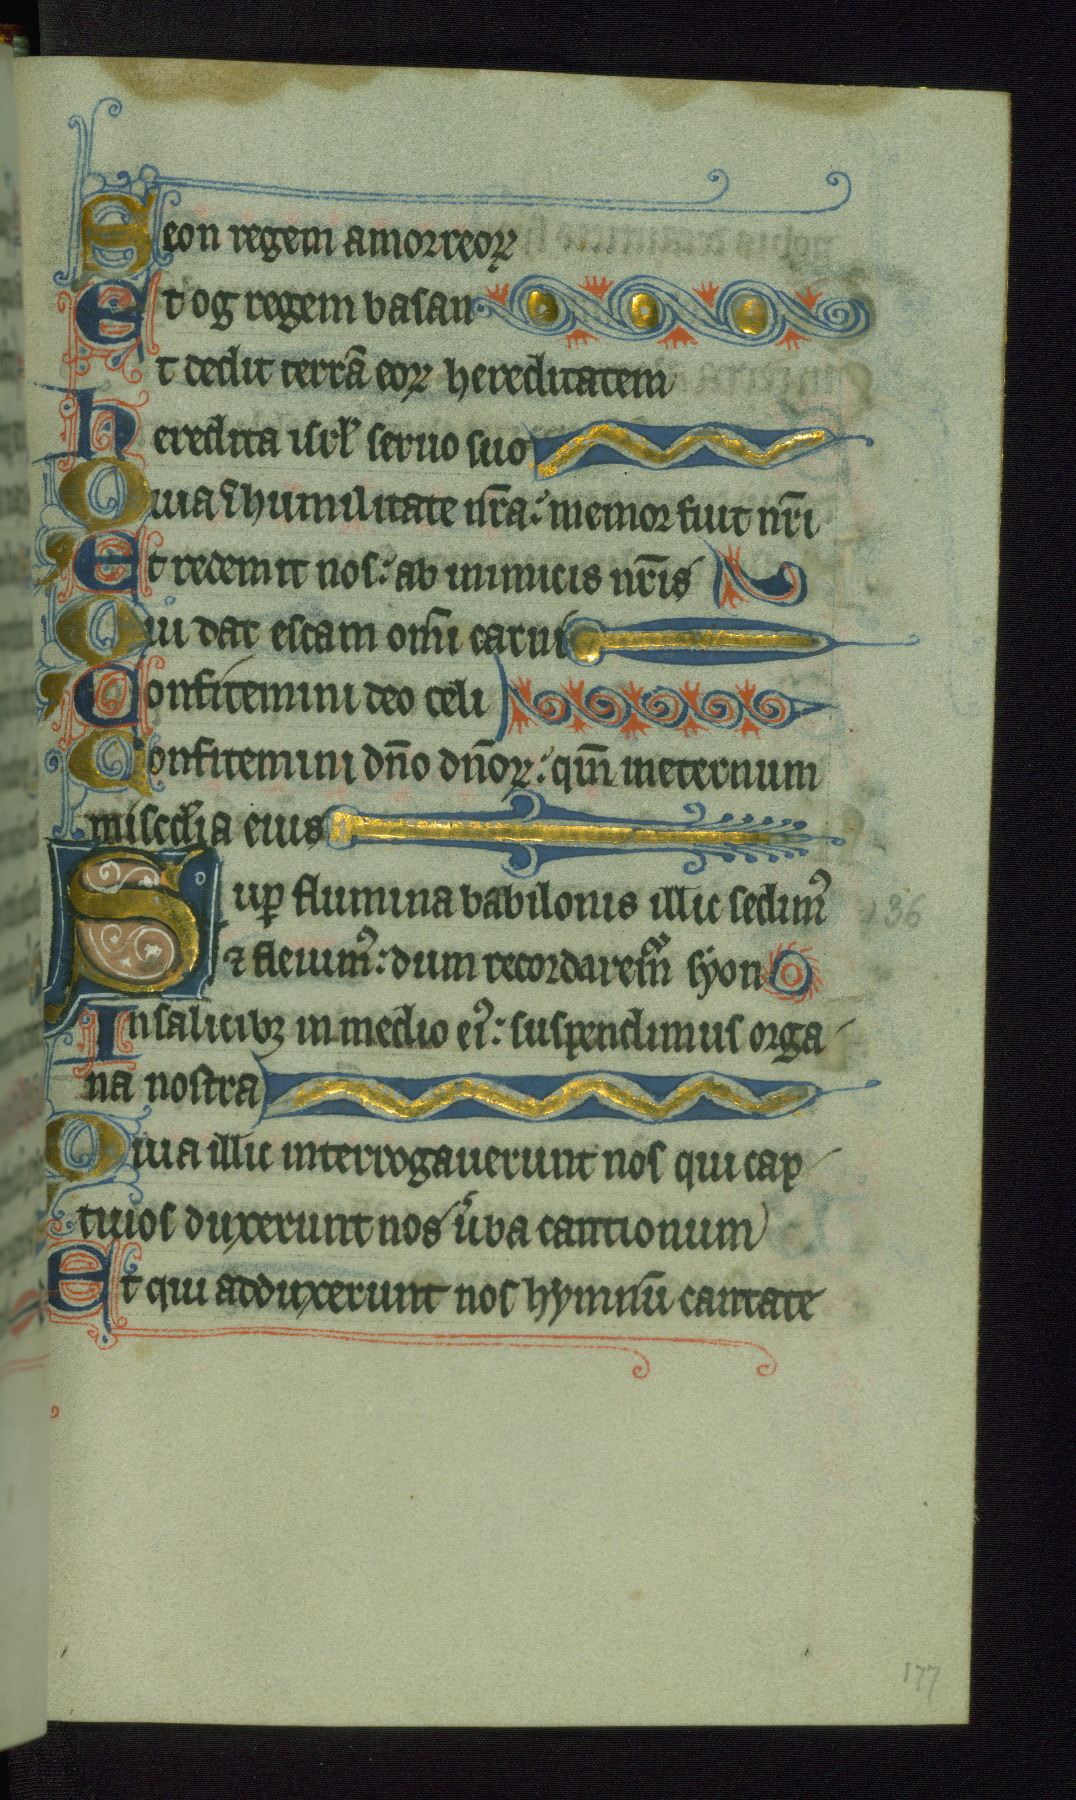 Seon regem amorreoꝝ
Et og regem basan
Et dedit terrā eoꝝ hereditatem
hereditā isrł seruo suo
Quia ī humilitate nr̄a: memor fuit nr̄i
Et redemit nos: ab inimicis nr̄is
Qui dat escam om̄i carni
Confitemini deo celi
Confitemini dn̄o dn̄oꝝ: qm̄ ineternum
misc̄dia eius
Suꝑ flumina babilonis illic sedim᷒
136
⁊ fleuim᷒: dum recordarem᷒ syon
In salicibꝫ in medio ei᷒: suspendimus orga
na nostra
Quia illic interrogauerunt nos qui cap
tiuos duxerunt nos u̾ba cantionum
Et qui adduxerunt nos hymnū cantate
177